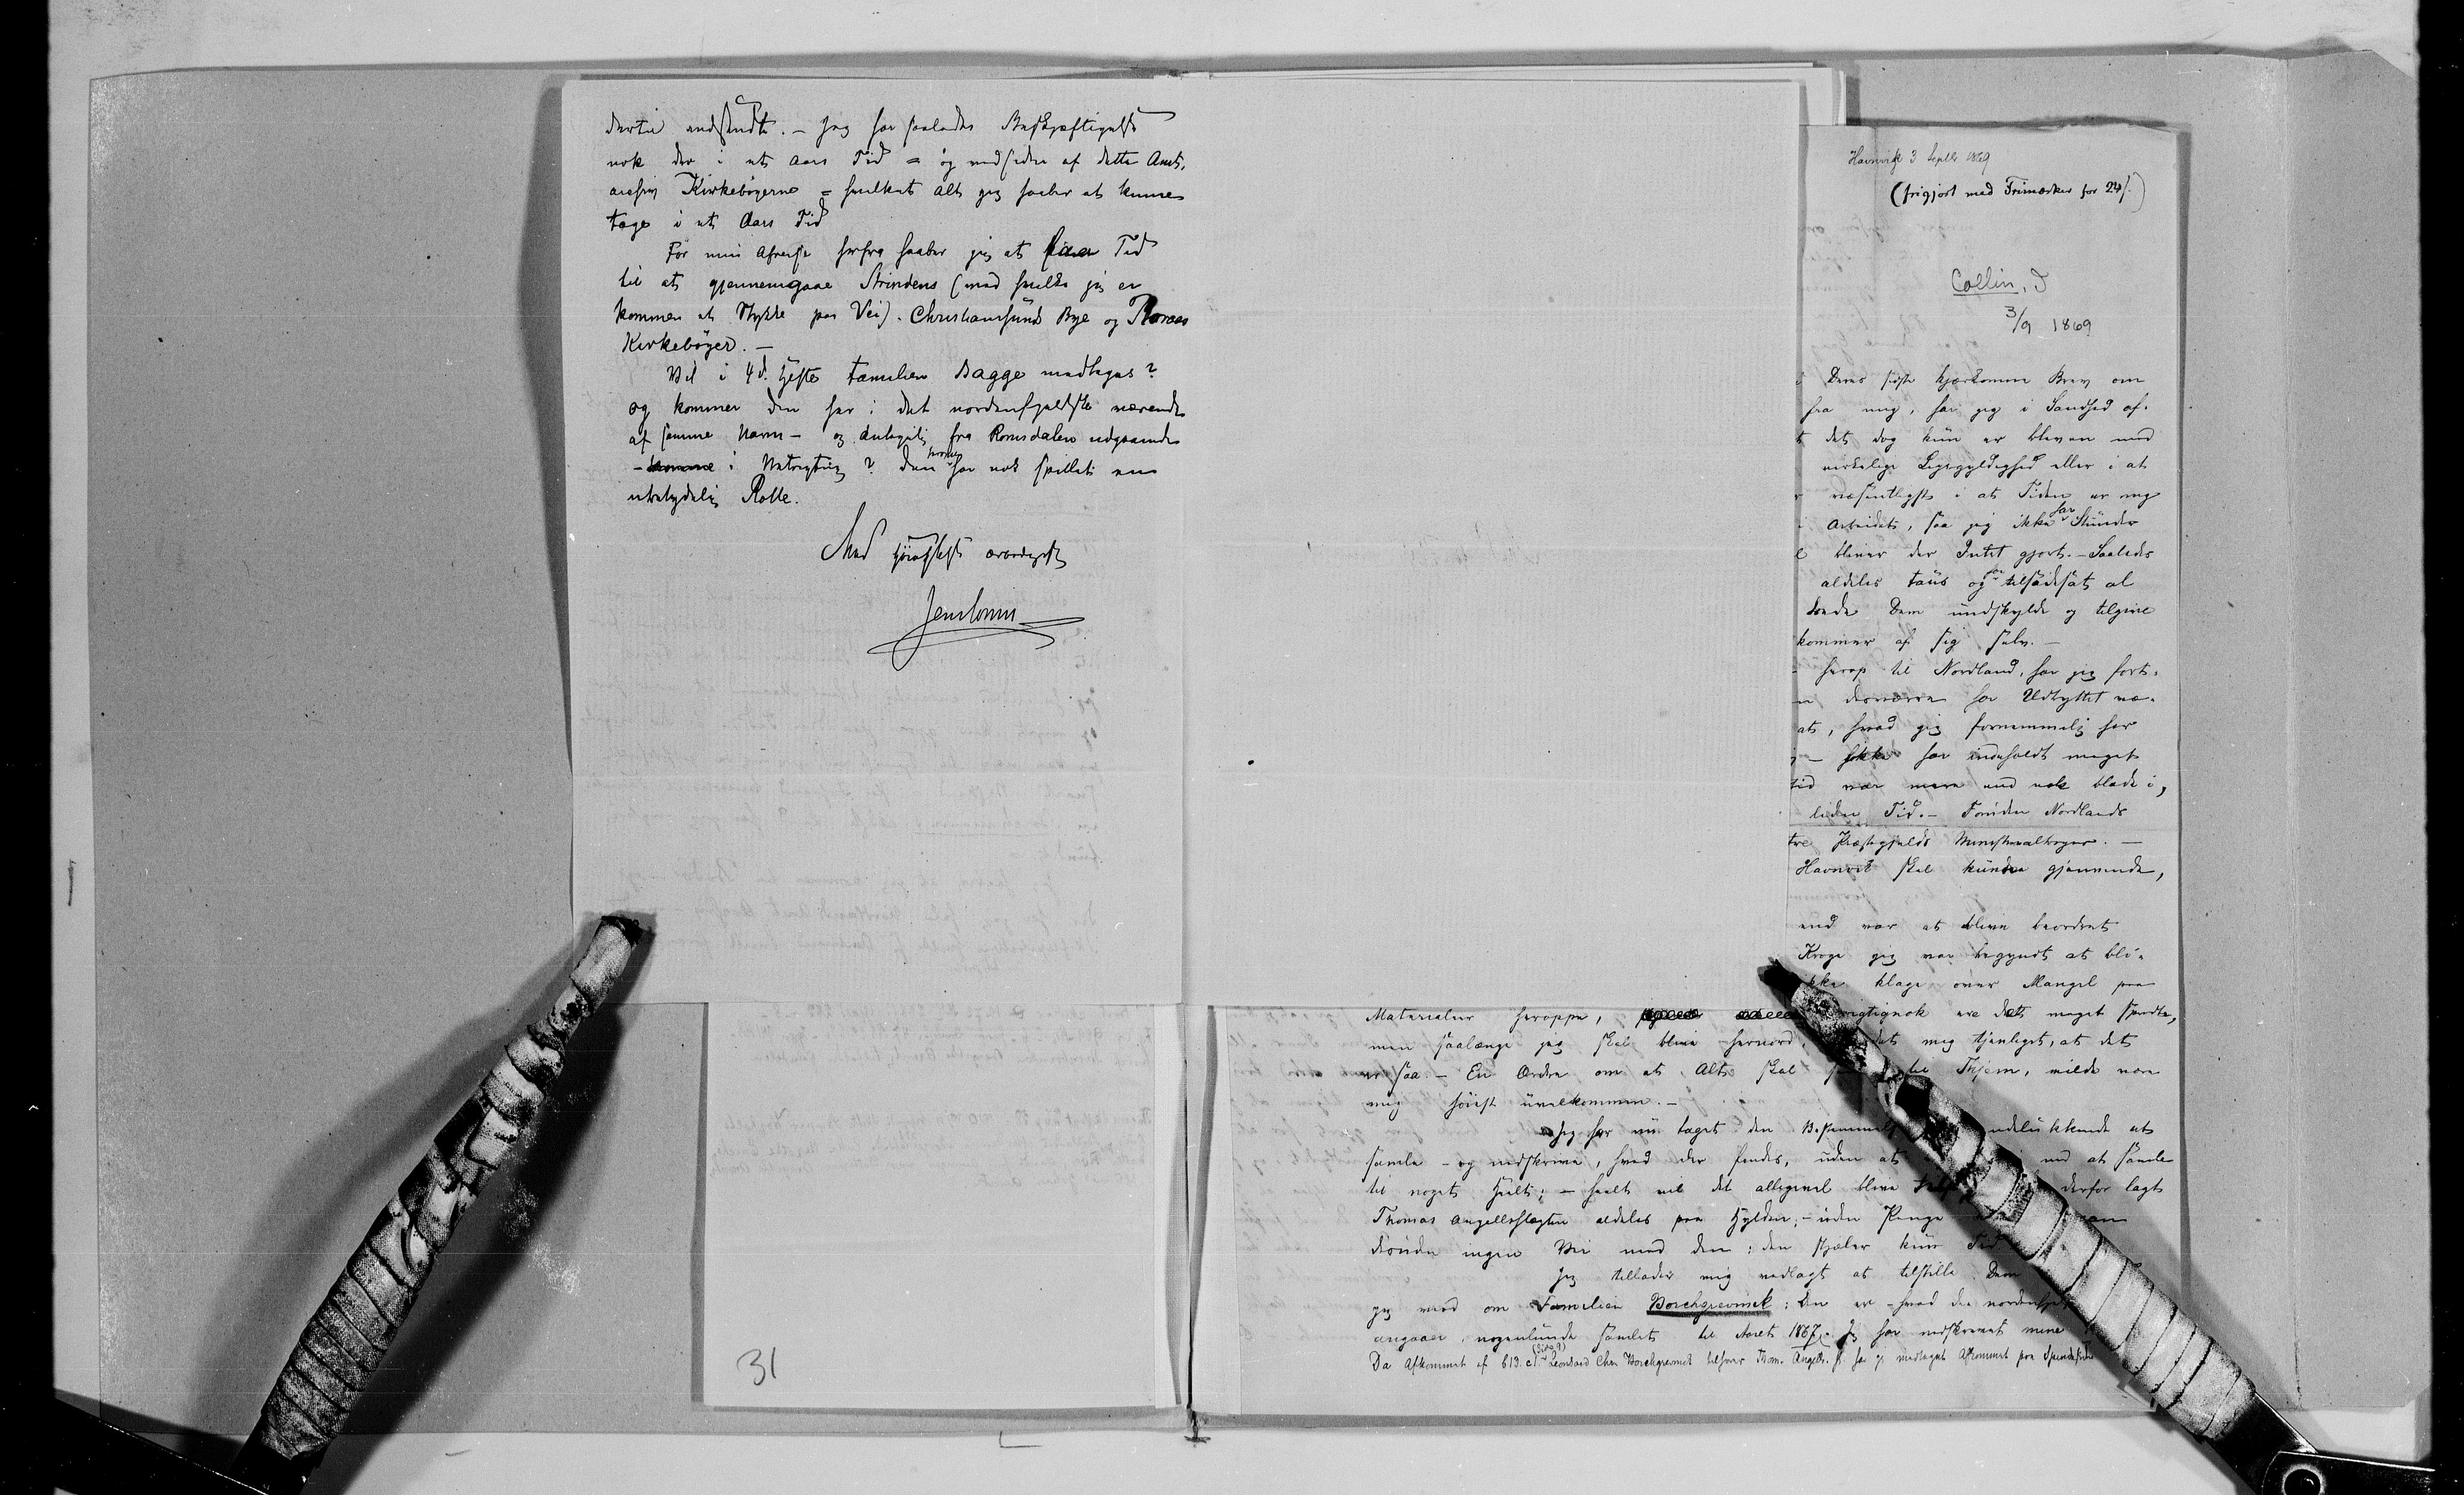 dertil udsendt. – Jeg har saaledes Beskjæftigelse
nok der i et Aars Tid = og ved siden af dette Amts,
archiv Kirkebøgerne = hvilket alt jeg haaber at kunne
tage i et Aars Tid
Før min Afreise herfra haaber jeg at faa Tid
til at gjennemgaae Strindens (med hvilke jeg er
kommen et Stykke paa Vei). Christiansunds Bye og Røraas
Kirkebøger. –
Vil i 4d. Hefte Familien Bagge medtages?
og kommer den her i det nordenfjeldske værende
af samme Navn – og antagelig fra Romsdalen udgaaende
– i Betragtning? den har nok spillet en
ubetydelig Rolle.
Med Høiagtelse ærbødigst
31
Havnvik 3 Septbr 1869
(frigjort med Frimærker for 24 s.)
Collin, J
3/9 1869
Deres sidste kjærkomne Brev om
fra mig, har jeg i Sandhed af.
det dog kun er bleven med
virkelige Ligegyldighed eller i at
væsentligst i at Tiden er mig
Arbeidet, saa jeg ikke har Stunder
bliver der Intet gjort. – Saaledes
aldeles taus og har tilsidesat al
Dem undskylde og tilgive
kommer af sig selv. –
herop til Nordland, har jeg forts.
desværre har Udbyttet væ.
at, hvad jeg fornemmelig har
– ikke har indeholdt meget
tid var mere end nok blade i,
liden Tid. – Foruden Nordlands
tre Præstegjelds Ministerialbøger. –
Havnvik skal kunne gjennemsee,
end var at blive beordret
Krogs jeg var begyndt at bli.
ikke klage over Mangel paa
Materialier heroppe, rigtignok ere det meget spredte,
men saalænge jeg skal blive hernord, det mig tjenligst, at det
er saa. – En Ordre om at Alt skal til Thjem, vilde være
mig høist uvelkommen. –
Jeg har nu taget den Bestemmelse udelukkende at
samle – og nedskrive, hvad der findes, uden at ved at samle
til noget Heelt; – heelt vil det alligevel blive derfor lagt
Thomas Angellslægten aldeles paa Hylden; – uden Penge
desuden ingen Vei med den: den stjæler kun Tid
Jeg tillader mig vedlagt at tilstille Dem
jeg veed om Familien Borchgrevinck: den er – hvad den nordenfjeldske
angaaer nogenlunde samlet til Aaret 1867. Jeg har nedskrevet mine
Da Afkommet af b13. c1. (Side 9) Leonhard Chr. Borchgrevinck tilhører Thom. Angells. f. har jeg medtaget Afkommet paa Spindesiden